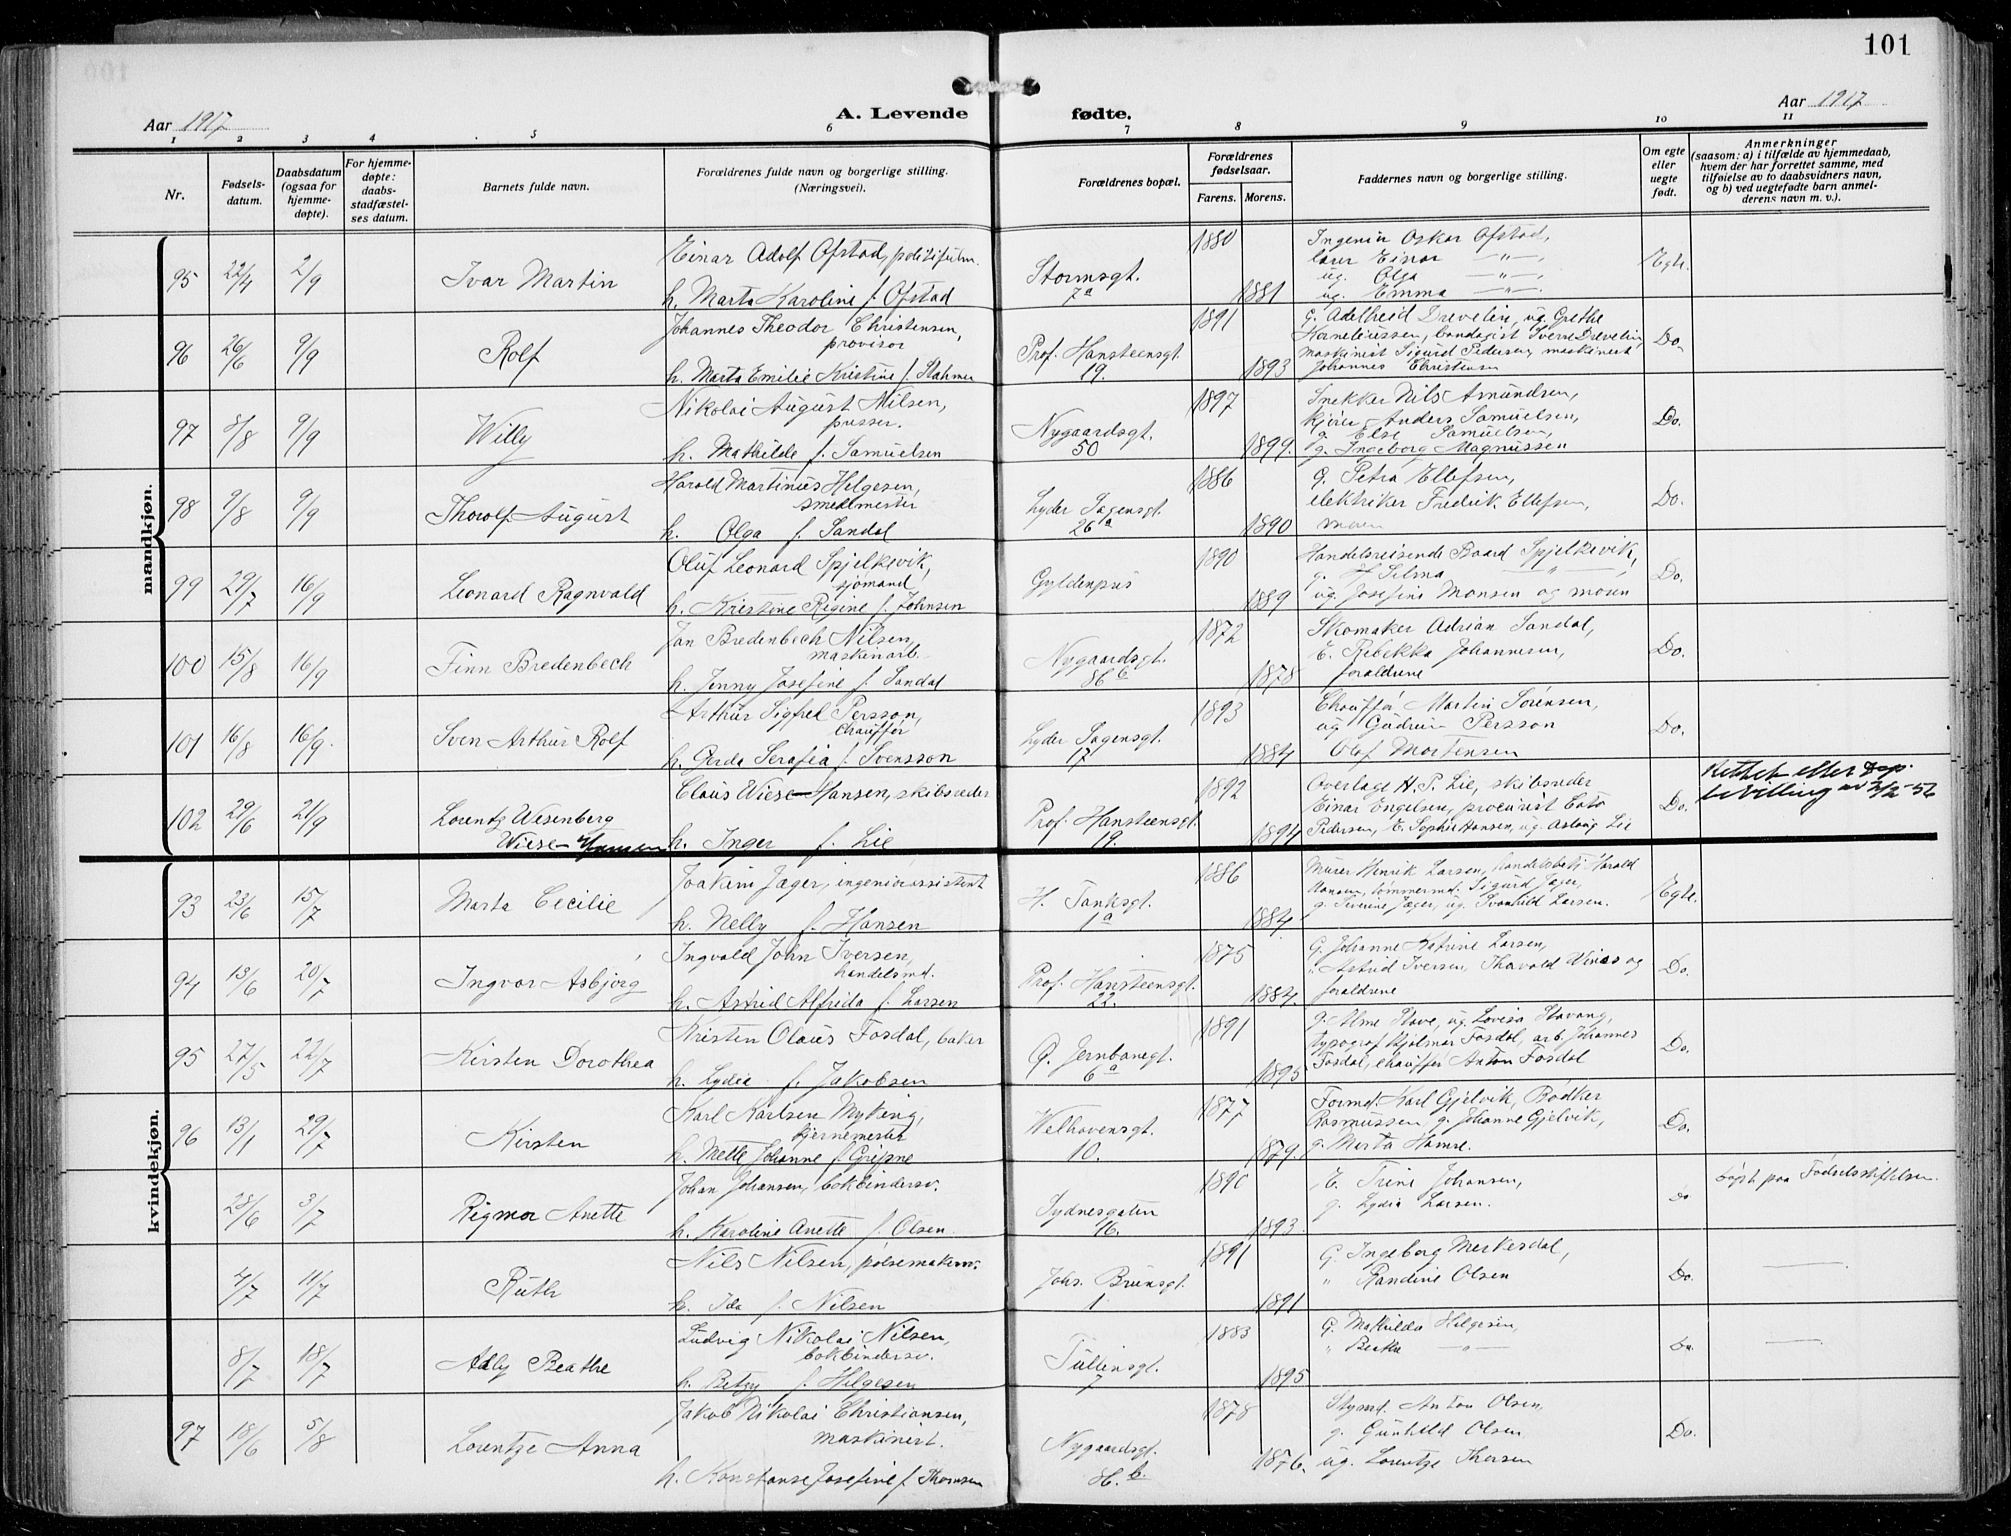 101
Aar 1917
A. Levende fødte.
Aar 1917
1 2 3 4 5 6 7 8 9 10 11
Nr.
Fødsels-
datum.
Daabsdatum
(ogsaa for
hjemme-
døpte).
For hjemme-
døpte:
daabs-
stadfæstel-
ses datum.
Barnets fulde navn.
Forældrenes fulde navn og borgerlige stilling.
(Næringsvei).
Forældrenes bopæl.
Forældrenes
fødselsaar.
Farens. Morens.
Faddernes navn og borgerlige stilling.
Om egte
eller
uegte
født.
Anmerkninger
(saasom: a) i tilfælde av hjemmedaab,
hvem der har forrettet samme, med
tilføielse av to daabsvidners navn,
og b) ved uegtefødte barn anmel-
derens navn m. v.).
mandkjøn.
95 22/4 2/9 Ivar Martin
Einar Adolf Ofstad, politifulm.
h. Marta Karoline f. Ofstad
Stormsgt.
7a
1880 1881
Ingeniør Oskar Ofstad,
lærer Einar —"—,
ug. Olga —"—,
ug. Emma —"—.
Egte.
96 26/6 9/9 Rolf
Johannes Theodor Christensen,
provisor
h. Marta Emilie Kristine f. Stahmer
Prof. Hansteensgt.
19.
1891 1893
G. Adelheid Drevelin, ug. Grethe
Korneliussen, bandagist Sverre Drevelin,
maskinist Sigurd Pedersen, maskinist
Johannes Christensen
Do.
97 8/8 9/9 Willy
Nikolai August Nilsen,
pusser.
h. Mathilde f. Samuelsen
Nygaardsgt.
50
1897 1899.
Snekker Nils Amundsen,
kjører Anders Samuelsen,
g. Else Samuelsen,
g. Ingeborg Magnussen
Do.
98 9/8 9/9 Thorolf August
Harald Martinus Helgesen,
smedmester
h. Olga f. Sandal
Lyder Sagensgt.
26a
1886 1890
G. Petra Ellefsen,
elektriker Fredrik Ellefsen,
moren
Do.
99 29/7 16/9 Leonard Ragnvald
Oluf Leonard Spjelkevik,
sjømand
h. Kristine Regine f. Johnsen
Gyldenpris
1890 1889
Handelsreisende Baard Spjelkevik,
g. Selma —"—,
ug. Josefine Monsen og moren
Do.
100 15/8 16/9 Finn Bredenbech
Jan Bredenbech Nilsen,
maskinarb.
h. Jenny Josefine f. Sandal
Nygaardsgt.
86 b
1872 1878
Skomaker Adrian Sandal,
E. Rebekka Johannesen,
forældrene
Do.
101 16/8 16/9. Sven Arthur Rolf
Arthur Sigfred Persson,
chauffør
h. Gerda Serafia f. Svensson
Lyder Sagensgt.
17
1893 1884
Chauffør Martin Sørensen,
ug Gudrun Persson
Olaf Mortensen
Do.
102 29/6 21/9 Lorentz Wesenberg
Wiese-Hansen
Claus Wiese-Hansen, skibsreder
h. Inger f. Lie
Prof. Hansteensgt.
19.
1892 1894
Overlæge H. P. Lie, skibsreder
Einar Engelsen, prokurist Cato
Pedersen, E. Sophie Hansen, ug. Aslaug Lie
Do.
Rettet efter Dep.
bevilling av 2/2-56
kvindekjøn.
93 23/6 15/7 Marta Cecilie
Joakim Jæger, ingeniørassistent
h. Nelly f. Hansen
H. Tanksgt.
1a
1886 1884
Murer Henrik Larsen, handelsbetj. Harald
Hansen, tømmermd. Sigurd Jæger,
g. Severine Jæger, ug. Svanhild Larsen.
Egte.
94 13/6 20/7 Ingvor Asbjørg
Ingvald John Iversen,
handelsmd.
h. Astrid Alfrida f. Larsen
Prof. Hansteensgt.
22.
1875 1884
G. Johanne Katrine Larsen,
" Astrid Iversen, Thorvald Winæs og
forældrene
Do.
95 27/5 22/7 Kirsten Dorothea
Kristen Olaus Fosdal, baker
h. Lydia f. Jakobsen
Ø. Jernbanegt.
6a
1891 1895
g. Alme Stave, ug. Lovisa Stavang,
typograf Hjalmar Fosdal, arb. Johannes
Fosdal, chauffør Anton Fosdal
Do.
96 13/1 29/7 Kirsten
Karl Karlsen Myking,
kjernemester
h. Mette Johanne f. Gripne
Welhavensgt.
10.
1877 1879.
Formd. Karl Gjelvik, Bødker
Rasmussen, g. Johanne Gjelvik,
g. Marta Hamre.
Do.
28/6 3/7 Rigmor Anette
Johan Johansen, bokbindersv.
h. Karoline Anette f. Olsen
Sydnesgaten
16.
1890 1893
E. Trine Johansen,
g. Lydia Larsen.
Do
Døpt paa Fødselsstiftelsen.
4/7 11/7 Ruth
Nils Nilsen, pølsemakersv.
h. Ida f. Nilsen
Johs. Brunsgt.
1
1891 1891
G. Ingeborg Merkesdal,
" Randine Olsen
Do.
8/7 18/7 Adly Beathe
Ludvig Nikolai Nilsen,
bokbindersv.
h. Betzy f. Helgesen
Tullinsgt.
7
1883 1895
G. Mathilda Helgesen,
" Beathe —"—
Do.
97 18/6 5/8 Lorentze Anna
Jakob Nikolai Christiansen,
maskinist.
h. Konstanse Josefine f. Thomsen
Nygaardsgt.
86. b.
1878 1876.
Styrmd. Anton Olsen,
g. Gunhild Olsen
ug. Lorentze Thorsen
Do.